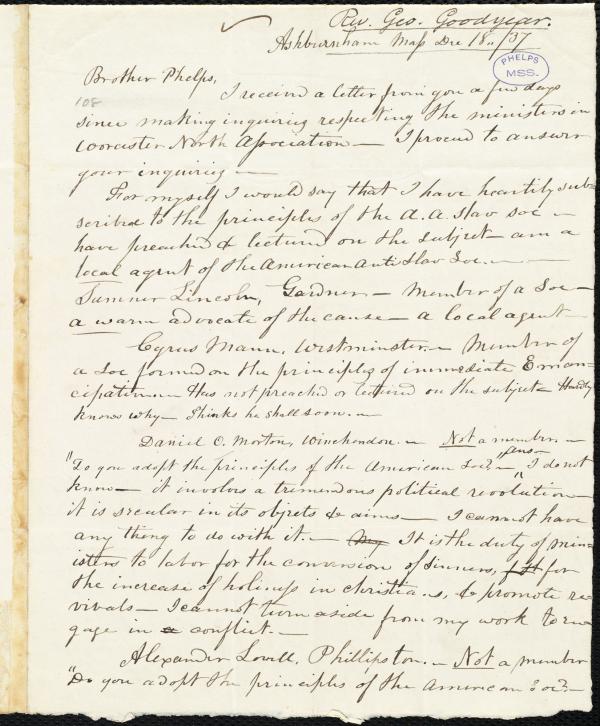 Rev. Geo. Goodyear.
Ashburnham Mass Dec 18.. /37
PHELPS
MSS.
Brother Phelps,
108
I received a letter from you a few days
since making inquiries respecting the ministers in
Worcester North Association — I proceed to answer
your inquiries —
For myself I would say that I have heartily sub-
scribed to the principles of the A. A. Slav Soc —
have preached & lectured on the subject — am a
local agent of the American Anti Slav Soc. — —
Sumner Lincoln, Gardner — Member of a Soc —
a warm advocate of the cause — a local agent
Cyrus Mann, Westminster. — Member of
a Soc formed on the principles of immediate Eman-
cipation — Has not preached or lectured on the subject — Hardly
knows why — Thinks he shall soon. —
Daniel O. Morton, Winchendon. — Not a member. —
"Do you adopt the principles of the American Soc? — " Ans — "I do not
know — it involves a tremendous political revolution —
it is secular in its objects & aims — I cannot have
any thing to do with it. — My It is the duty of min-
isters to labor for the conversion of sinners, for
the increase of holiness in christians, & promote re-
vivals — I cannot turn aside from my work to en-
gage in a conflict. —
Alexander Lovell, Phillipston. — Not a member
"Do you adopt the principles of the American Soc? —